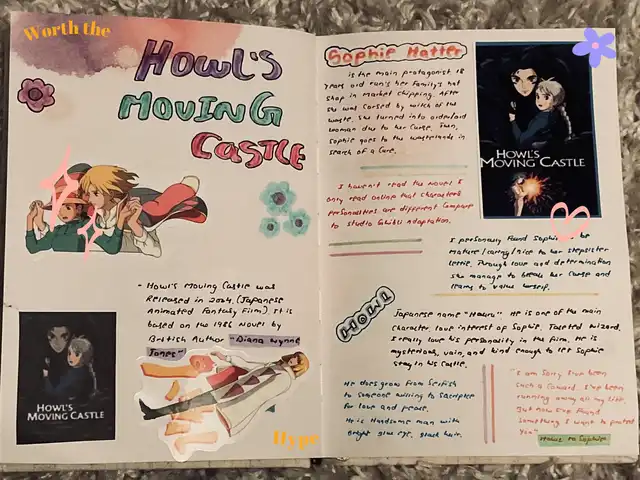 Worth the
HOWL'S
MOVING
CASTLE
- Howl's Moving Castle was
Released in 2004. (Japanese
Animated Fantasy Film). It is
based on the 1986 Novel by
British Author "Diana Wynne
Jones"
HOWL'S
MOVING CASTLE
Hype
Sophie Hatter
is the main protagonist 18
years old run's her family's hat
shop in Market chipping. After
she was cursed by witch of the
waste. She turned into order/old
woman due to her curse. Then,
Sophie goes to the wastelands in
search of a cure.
HOWL'S
MOVING CASTLE
I haven't read the Novel I
only read online that characters
Personalities are different compare
to studio Ghibli adaptation.
I personally found Sophie be
mature/caring/nice to her stepsister
lettie. Through love and determination
she manage to break her curse and
learns to value herself.
HOWL
Japanese name "Hauru" He is one of the main
character, love interest of Sophie, Talented wizard.
I really love his personality in the film. He is
mysterious, vain, and kind enough to let Sophie
stay in his castle.
He does grow from selfish
to someone willing to sacrifice
for love and peace.
He is Handsome man with
Bright blue eye, black hair.
"I am sorry I've been
such a coward. I've been
running away all my life.
But now I've found
something I want to protect
You"
Howl to Sophie